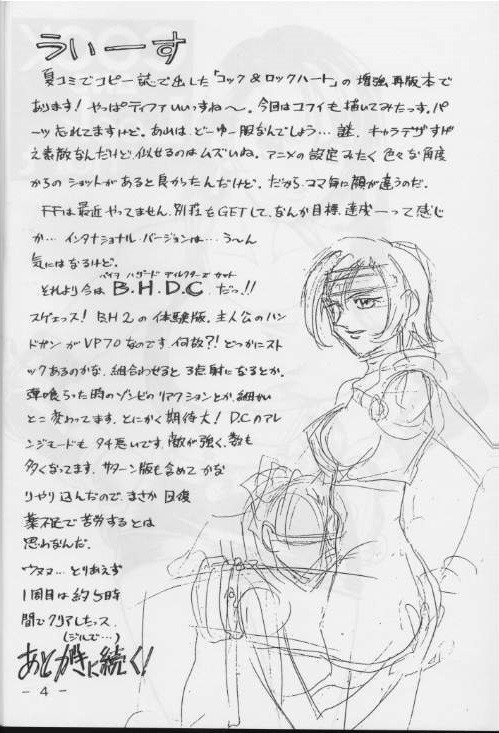 うぃーす
夏コミでコピー誌で出した「コック&ロックハート」の増強再版本で
あります！やっぱティファいいっすね〜。今回はコワイも描いてみたっす。パ
ーツ忘れてますけど。あれは、どーゆー服なんでしょう…謎。キャラデザすげ
え素敵なんだけど似せるのはムズいね。アニメの設定みたく色々な角度
からのショットがあると良かったんだけど。だから、コマ毎に顔が違うのだ。
FFは最近やってません。別荘もGETして、なんか目標、達成ーって感じ
か…インタナショナル・バージョンは…う〜ん
気にはなるけど。
バイオ ハザード ディレクターズ カット
それより今は B.H.D.C. だっ!!
スゲェッス！B.H2の体験版。主人公のハン
ドガンがVP70なのです。何故?!どっかにスト
ックあるのかな、組合わせると3点射になるとか。
弾喰らった時のゾンビのリアクションとか、細かい
とこ変わってます。とにかく期待大！D.C.のアレ
ンジモードもタチ悪いです。敵が強く、数も
多くなってます。サターン版も含めてかな
りやり込んだので、まさか回復
薬不足で苦労するとは
思わなんだ。
ウヌヌ…とりあえず
1周目は約5時
間でクリアしたっス
(ジルで…)
あとがきに続く！
- 4 -